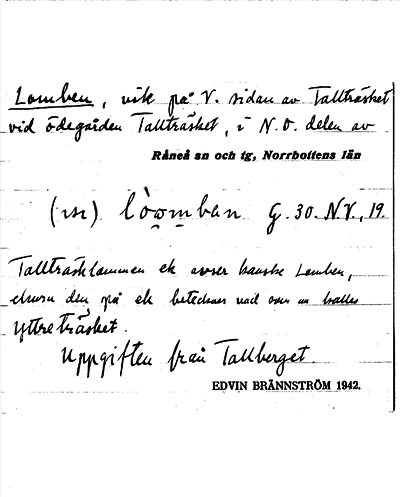 Lomben, vik på V. sidan av Tallträsket
vid ödegården Tallträsket, i N.O. delen av
Råneå sn och tg, Norrbottens län
(ın) lòomban G. 30. N.V., 19.
Tallträsklammen ek avser kanske Lomben,
ehuru den på ek betecknar vad som nu kallas
Yttreträsket.
Uppgiften från Tallberget.
EDVIN BRÄNNSTRÖM 1942.